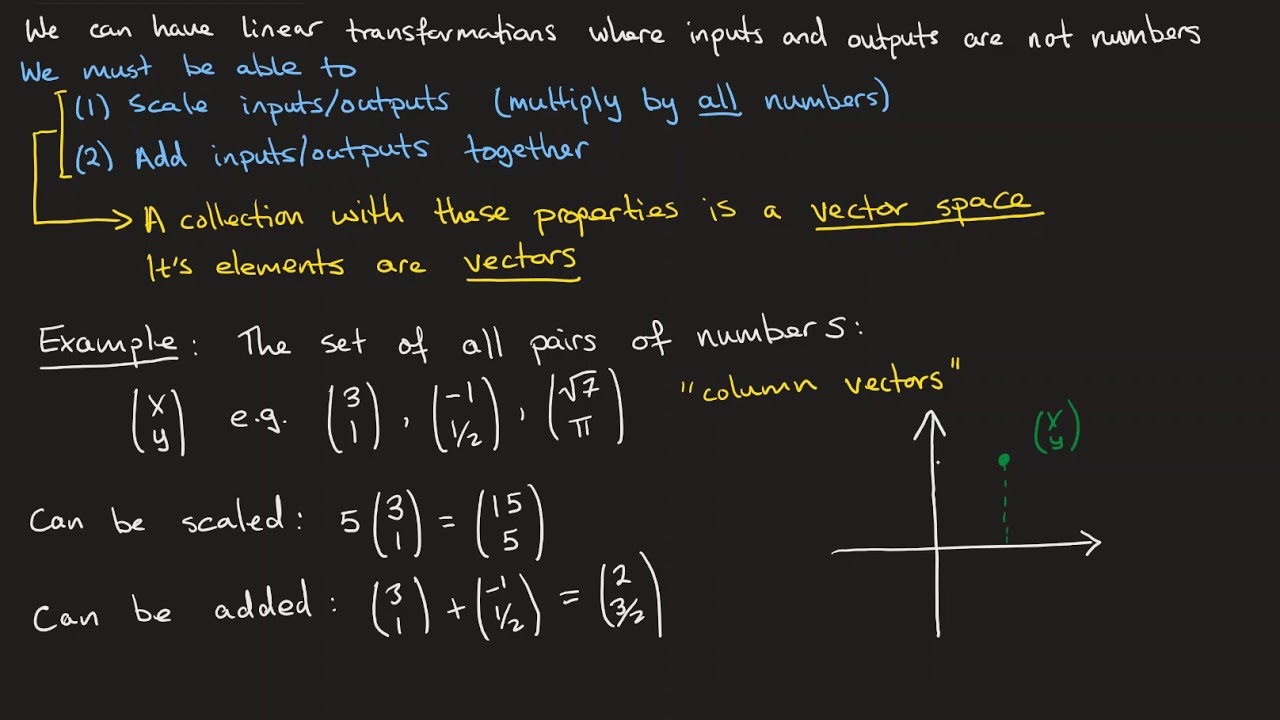 We can have linear transformations where inputs and outputs are not numbers
We must be able to
(1) Scale inputs/outputs (multiply by all numbers)
(2) Add inputs/outputs together
A collection with these properties is a vector space
It's elements are vectors
Example: The set of all pairs of numbers:
(x y) e.g. (3 1), (-1 1/2), (√7 π) "column vectors"
(x y)
Can be scaled: 5 (3 1) = (15 5)
Can be added: (3 1) + (-1 1/2) = (2 3/2)